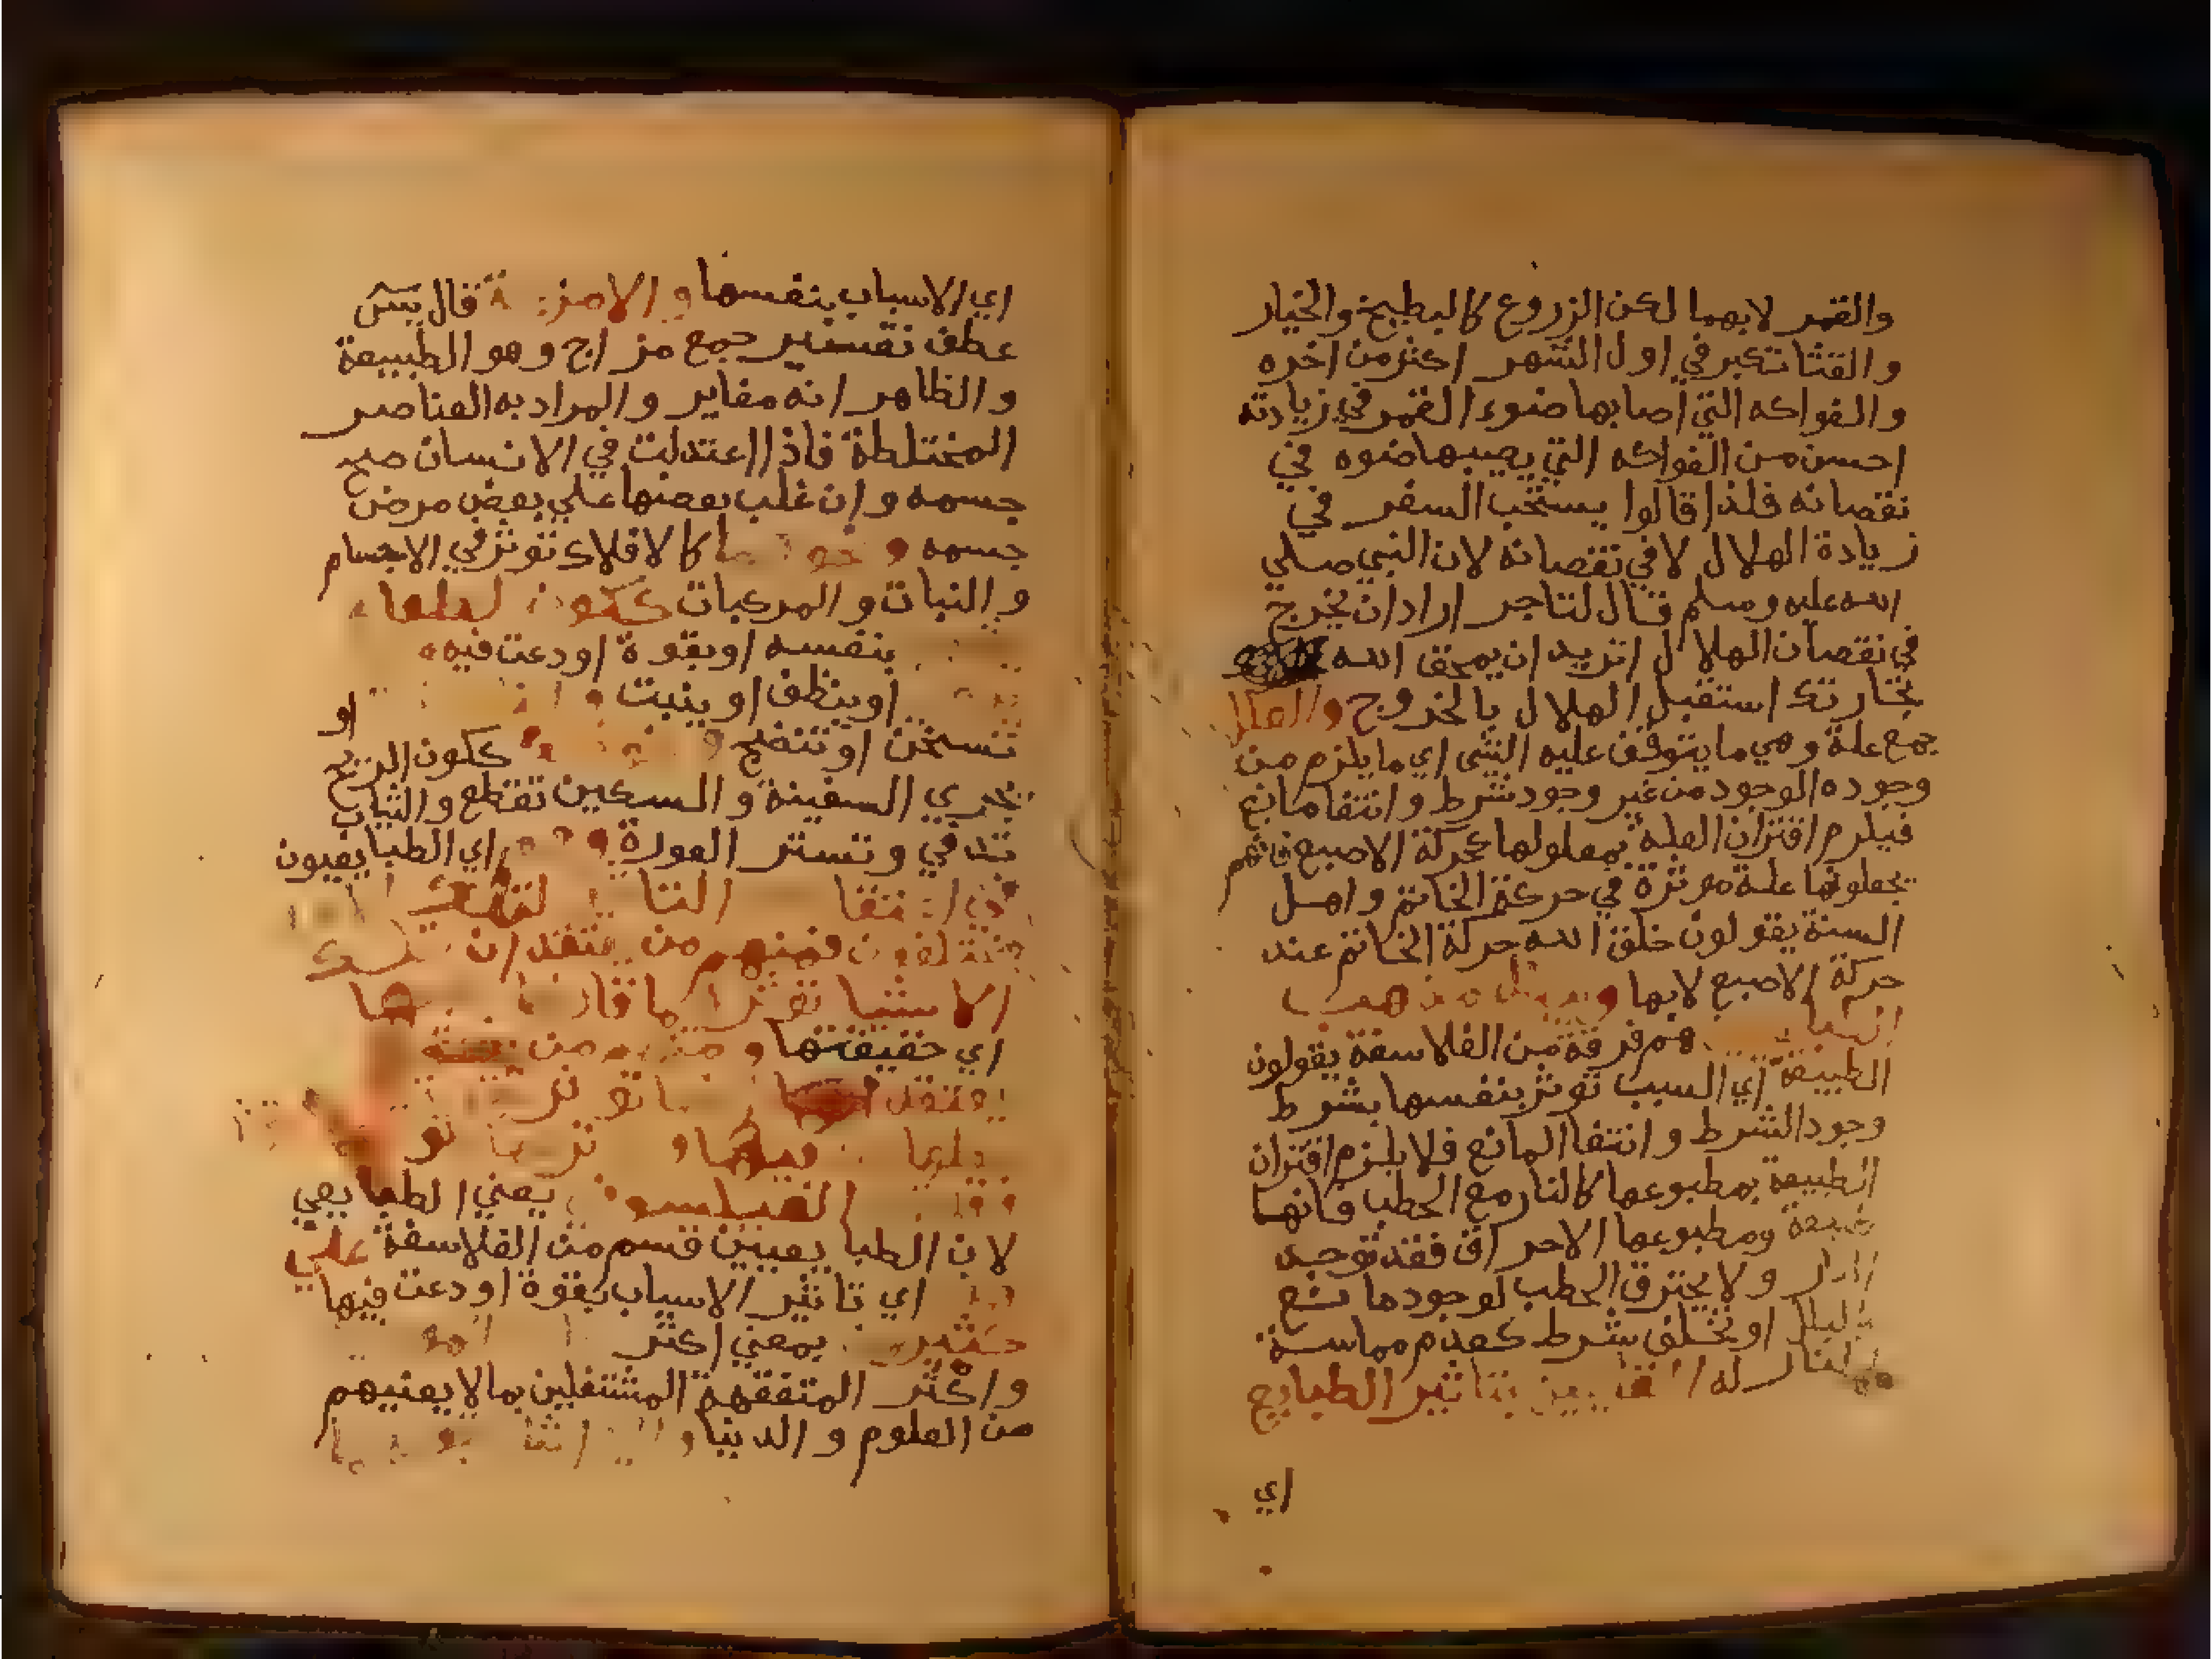 والقمر لابهما لكن الزروع كالبطيخ والخيار
والقثا تكبر في اول الشهر اكثر من اخره
والفواكه التي اصابها ضوء القمر في زيادته
احسن من الفواكه التي يصيبها ضوه في
نقصانه فلذا قالوا يستحب السفر في
زيادة الهلال لا في نقصانه لان النبي صلي
الله عليه وسلم قال لتاجر اراد ان يخرج
في نقصان الهلال اتريد ان يمحق الله
تجارتك استقبل الهلال بالخروج والعلل
جمع علة وهي ما يتوقف عليه الشي اي ما يلزم من
وجوده الوجود من غير وجود شرط وانتفا مانع
فيلزم اقتران العلة بمعلولها كحركة الاصبع فانهم
يجعلونها علة موثرة في حركة الخاتم واهل
السنة يقولون خلق الله حركة الخاتم عند
حركة الاصبع لابها ويبطل مذهب
هم فرقة من الفلاسفة يقولون
الطبيعة اي السبب توثر بنفسها بشرط
وجود الشرط وانتفا المانع فلا يلزم اقتران
الطبيعة بمطبوعها كالنار مع الحطب فانها
طبيعة ومطبوعها الاحراق فقد توجد
النار ولا يحترق الحطب لوجود مانع
كالبلل او تخلف شرط كعدم مماسة
النار له بتاثير الطبايع
اي
اي الاسباب بنفسها والامزجة قال يس
عطف تفسير جمع مزاج وهو الطبيعة
والظاهر انه مغاير والمراد به العناصر
المختلطة فاذا اعتدلت في الانسان صح
جسمه وان غلب بعضها علي بعض مرض
جسمه ونحوها كالافلاك توثر في الاجسام
والنبات والمركبات ككون الطعام
بنفسه او بقوة اودعت فيه
او ينظف او ينبت
او تسخن او تنضج ككون الريح
تجري السفينة والسكين تقطع والثياب
تدفي وتستر العورة اي الطبايعيون
لتلك
مختلفون فمنهم من يعتقد ان تلك
الاشيا توثر
اي حقيقتها ومنهم من
يعتقد انها
الفيلسوف يعني الطبايعي
لان الطبايعيين قسم من الفلاسفة علي
اي تاثير الاسباب بقوة اودعت فيها
كثير بمعني اكثر
واكثر المتفقهة المشتغلين بما لا يعنيهم
من العلوم والدنيا